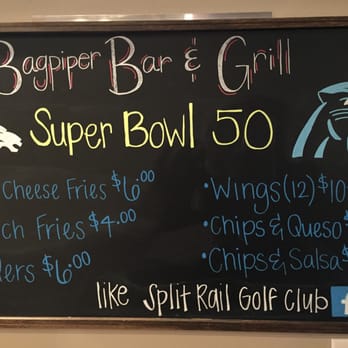 Bagpiper Bar & Grill
Super Bowl 50
Cheese Fries $6.00
Fries $4.00
$6.00
•Wings (12) $10
•Chips & Queso $
•Chips & Salsa $
like Split Rail Golf Club f